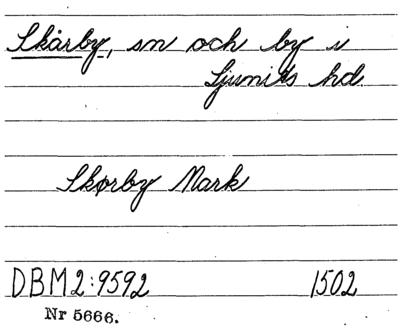 Skårby, sn och by i
Ljunits hd.
Skørby Mark
DBM 2:9592 1502
Nr 5666.